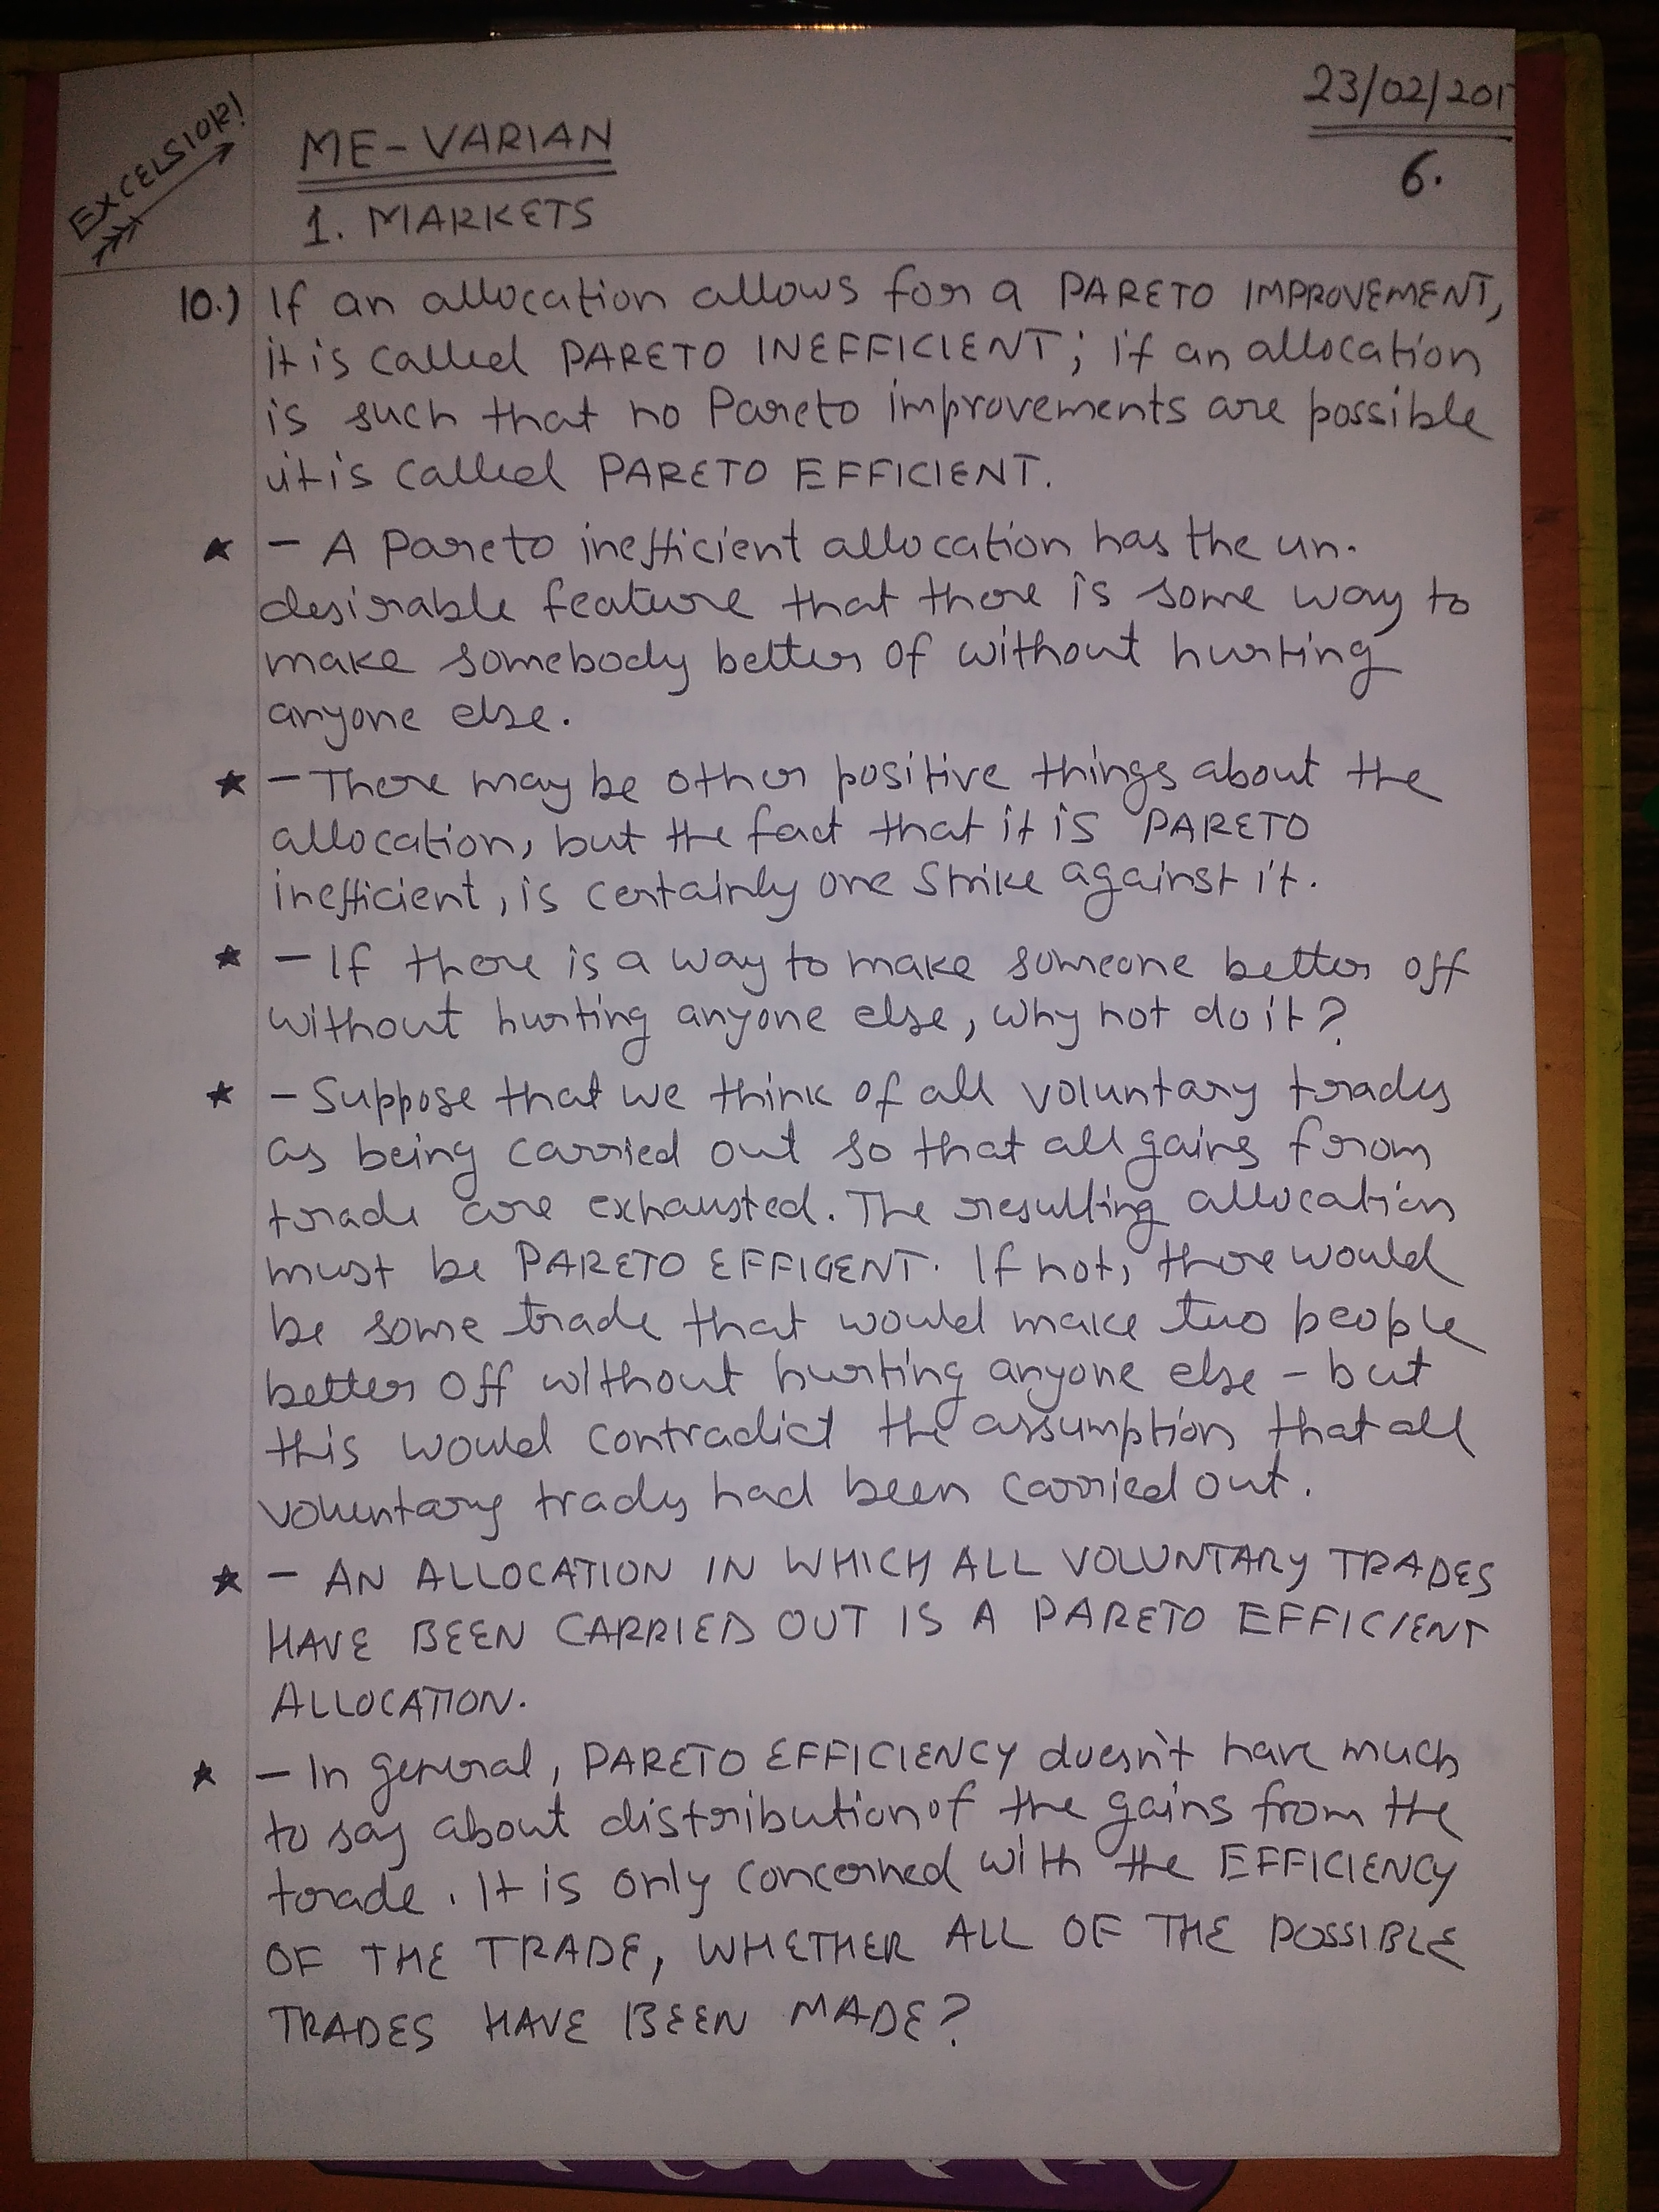 EXCELSIOR!
23/02/201
ME-VARIAN
6.
1. MARKETS
10.) If an allocation allows for a PARETO IMPROVEMENT,
it is called PARETO INEFFICIENT; if an allocation
is such that no Pareto improvements are possible
it is called PARETO EFFICIENT.
★ - A Pareto inefficient allocation has the un-
desirable feature that there is some way to
make somebody better of without hurting
anyone else.
★ - There may be other positive things about the
allocation, but the fact that it is PARETO
inefficient, is certainly one strike against it.
★ - If there is a way to make someone better off
without hurting anyone else, why not do it?
★ - Suppose that we think of all voluntary trades
as being carried out so that all gains from
trade are exhausted. The resulting allocation
must be PARETO EFFICENT. If not, there would
be some trade that would make two people
better off without hurting anyone else - but
this would contradict the assumption that all
voluntary trades had been carried out.
★ - AN ALLOCATION IN WHICH ALL VOLUNTARY TRADES
HAVE BEEN CARRIED OUT IS A PARETO EFFICIENT
ALLOCATION.
★ - In general, PARETO EFFICIENCY doesn't have much
to say about distribution of the gains from the
trade. It is only concerned with the EFFICIENCY
OF THE TRADE, WHETHER ALL OF THE POSSIBLE
TRADES HAVE BEEN MADE?